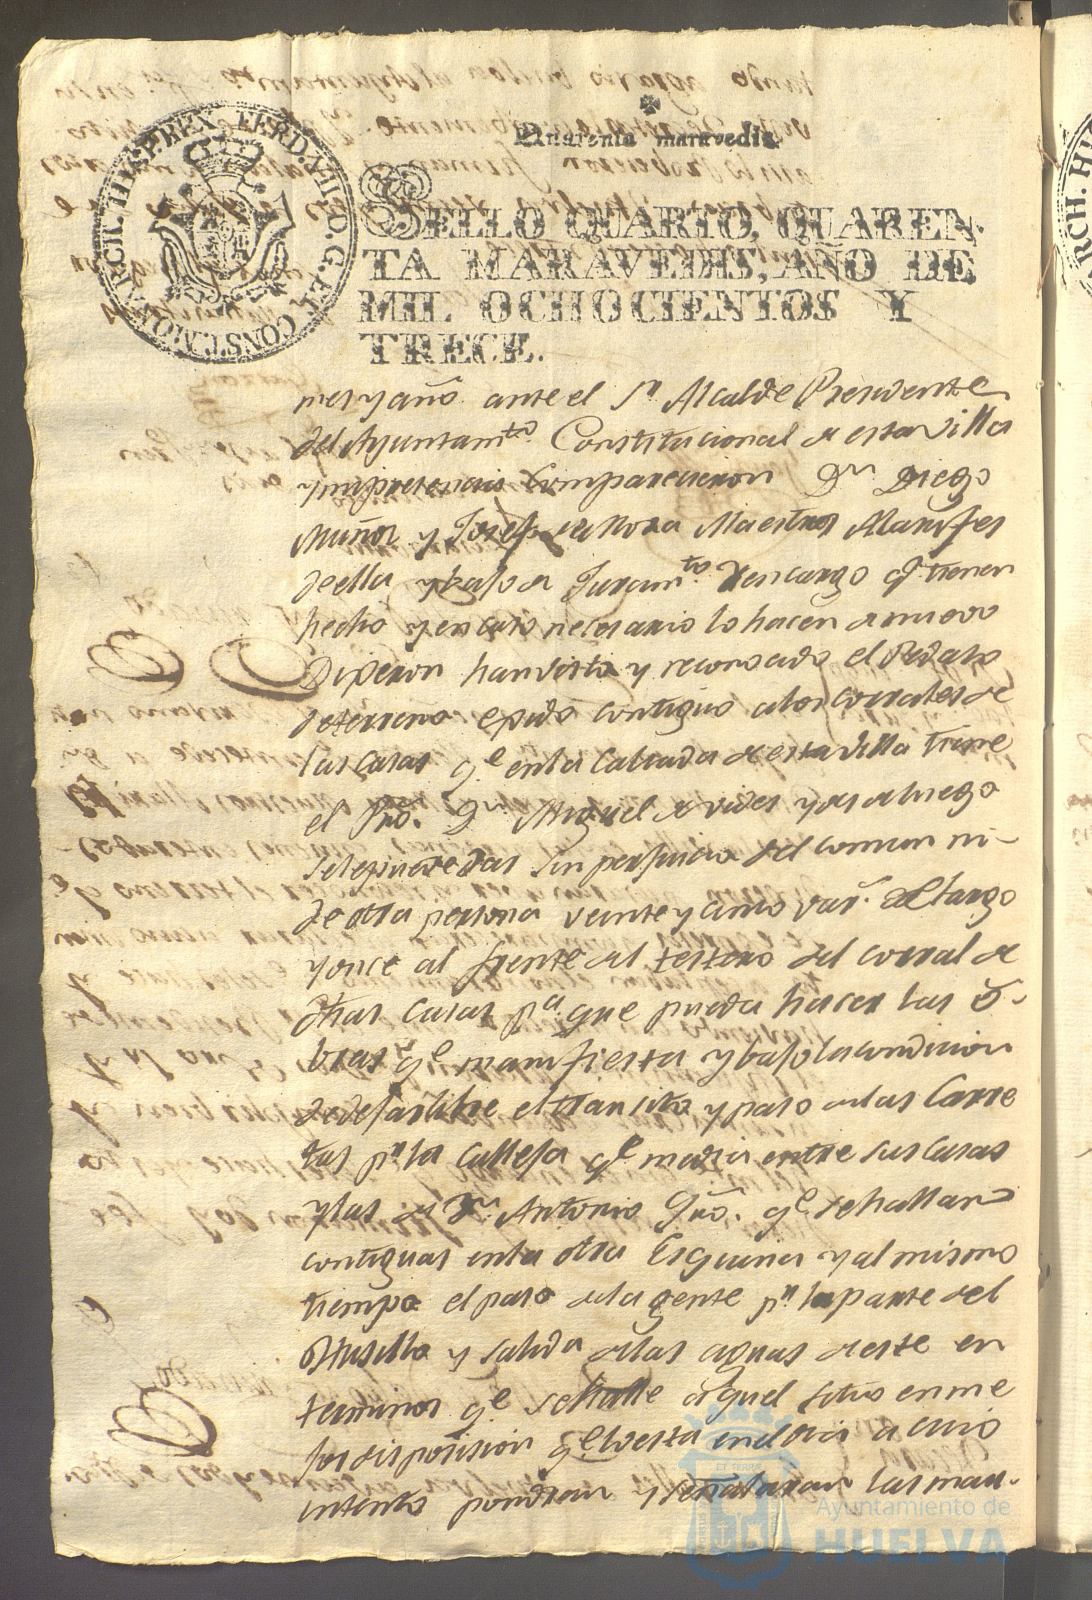 Quarenta maravedis.
SELLO QUARTO, QUAREN-
TA MARAVEDIS, AÑO DE
MIL OCHOCIENTOS Y
TRECE.
FERD. VII. D. G. ET CONST. MONARCH. HISP. REX
mes y año ante el Sr. Alcalde Presidente
del Ayuntamto. Constitucional de esta villa
y mi presencia comparecieron Dn Diego
Muñoz y Josef de Mora Maestros Alarifes
de ella y bajo de Juramto. de encargo q. tienen
hecho y en caso necesario lo hacen de nuevo
Dijeron han visto y reconocido el Pedazo
de terreno contiguo a los corrales de
las casas qe. en la Calzada de esta villa tiene
el Pro. Dn Miguel de vides y desde luego
se le puede dar sin perjuicio del comun ni
de otra persona veinte y cinco vars. de largo
y once al frente del testero del corral de
dhas casas pa. que pueda hacer las o-
bras qe. manifiesta y bajo la condicion
de dejar libre el transito y paso de las Carre
tas pr. la Calleja qe. media entre sus casas
y las de Dn. Antonio qe. se hallan
contiguas en la otra Esquina y al mismo
tiempo el paso de la gente pr. la parte del
Husillo y salida de las aguas de este en
terminos qe. se halle aquel sitio en me
jor disposision qe. lo esta en el dia a cuio
intento pondran y señalaran las mar-
ET TERRÆ
Ayuntamiento de
HUELVA